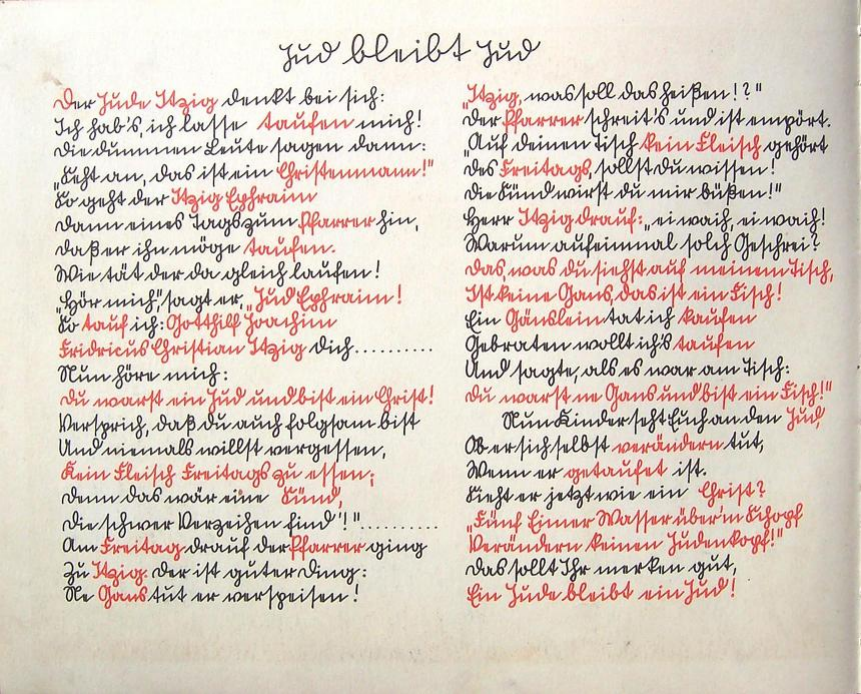 Jud bleibt Jud
Der Jude Itzig denkt bei sich:
Ich hab's, ich lasse taufen mich!
Die dummen Leute sagen dann:
„Seht an, das ist ein Christenmann!"
So geht der Itzig Ephraim
Dann eines Tags zum Pfarrer hin,
daß er ihn möge taufen.
Wie tät der da gleich laufen!
„Hör mich," sagt er, „Jud Ephraim!
So tauf ich: Gotthilf Joachim
Fridricus Christian Itzig dich..........
Nun höre mich:
Du warst ein Jud und bist ein Christ!
Versprich, daß du auch folgsam bist
Und niemals willst vergessen,
Kein Fleisch Freitags zu essen;
Denn das wär eine Sünd,
die schwer Verzeihen find'!"..........
Am Freitag drauf der Pfarrer ging
Zu Itzig. Der ist guter Ding:
Ne Gans tut er verspeisen!
„Itzig, was soll das heißen!?"
Der Pfarrer schreit's und ist empört.
„Auf deinen Tisch kein Fleisch gehört
des Freitags, sollst du wissen!
Die Sünd wirst du mir büßen!"
Herr Itzig drauf: „ei waih, ei waih!
Warum auf einmal solch Geschrei?
Das, was du siehst auf meinem Tisch,
Ist keine Gans, das ist ein Fisch!
Ein Gänslein tat ich kaufen
Gebraten wollt ich's taufen
Und sagte, als es war am Tisch:
Du warst ne Gans und bist ein Fisch!"
Nun Kinder seht Euch an den Jud,
Ob er sich selbst verändern tut,
Wenn er getaufet ist.
Sieht er jetzt wie ein Christ?
„Fünf Eimer Wasser über'm Schopf
Verändern keinen Judenkopf!"
Das sollt Ihr merken gut,
Ein Jude bleibt ein Jud!